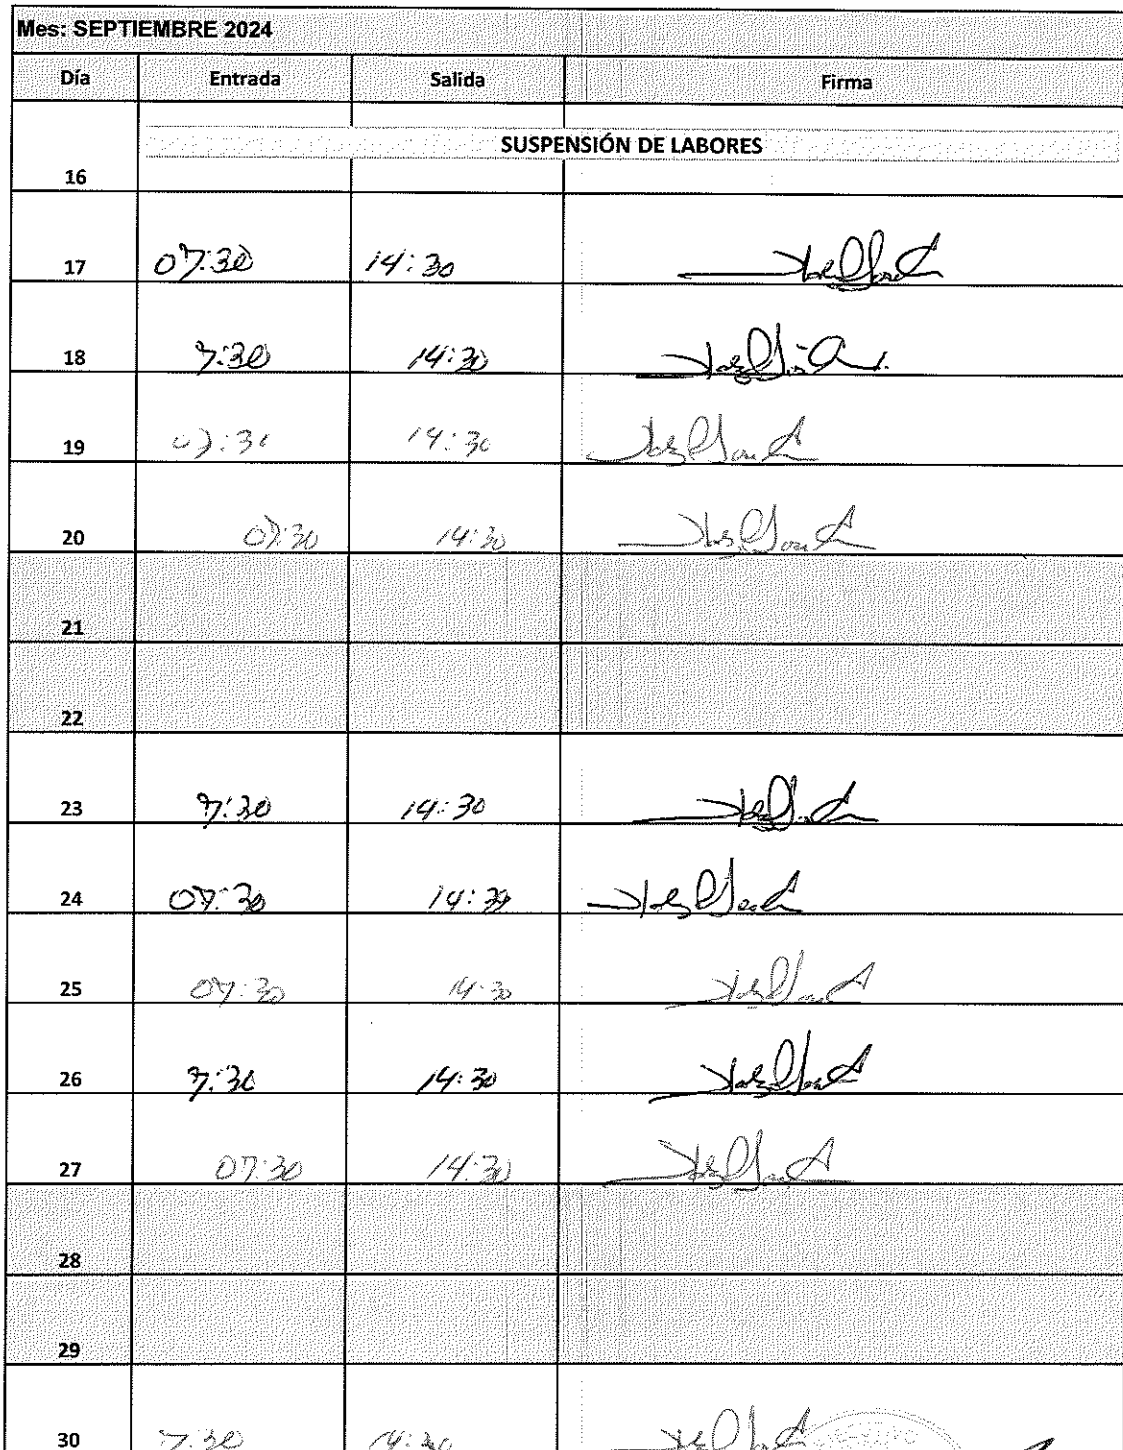 Mes: SEPTIEMBRE 2024
Día Entrada Salida Firma
SUSPENSIÓN DE LABORES
16
17 07:30 14:30
18 7:30 14:30
19 07:30 14:30
20 07:30 14:30
21
22
23 7:30 14:30
24 07:30 14:30
25 07:30 14:30
26 7:30 14:30
27 07:30 14:30
28
29
30 7:30 14:30